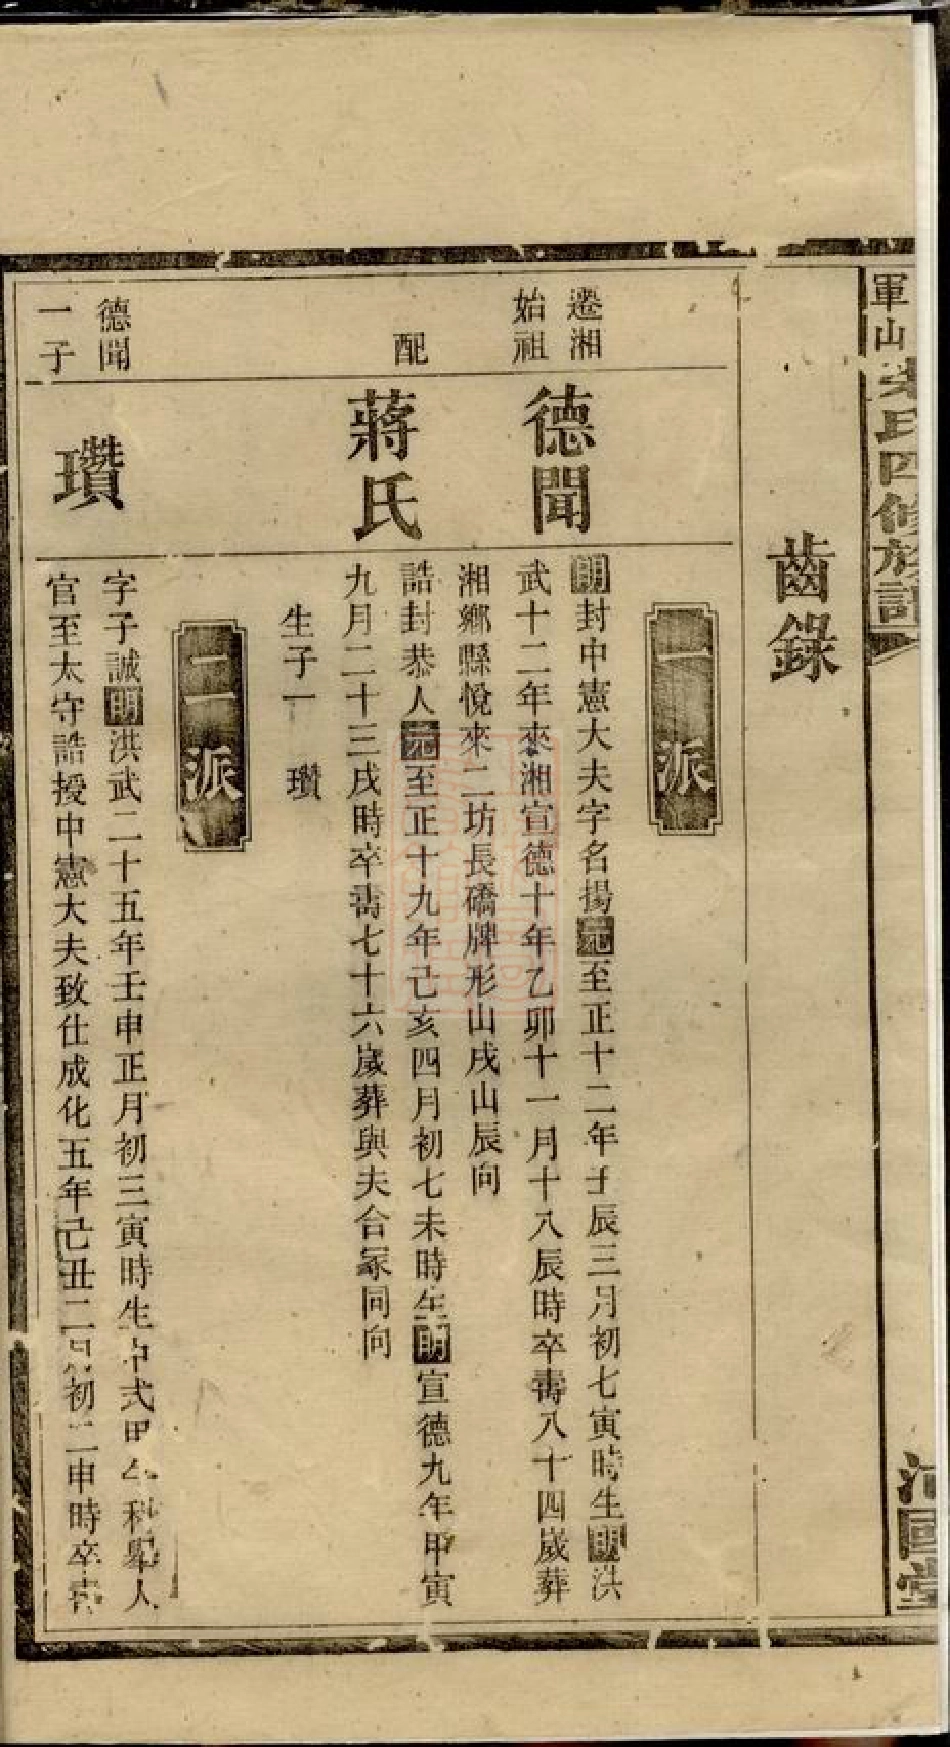 軍山
氏四修族譜
齒錄
一派
遷湘
始祖
德聞
明封中憲大夫字名揚元至正十二年壬辰三月初七寅時生明洪
武十二年來湘宣德十年乙卯十一月十八辰時卒壽八十四歲葬
湘鄉縣悅來二坊長磽牌形山戌山辰向
配
蔣氏
誥封恭人元至正十九年己亥四月初七未時生明宣德九年甲寅
九月二十三戌時卒壽七十六歲葬與夫合冢同向
生子一 瓚
二派
德聞
一子
瓚
字子誠明洪武二十五年壬申正月初三寅時生中式甲午科舉人
官至太守誥授中憲大夫致仕成化五年己丑二月初二申時卒壽